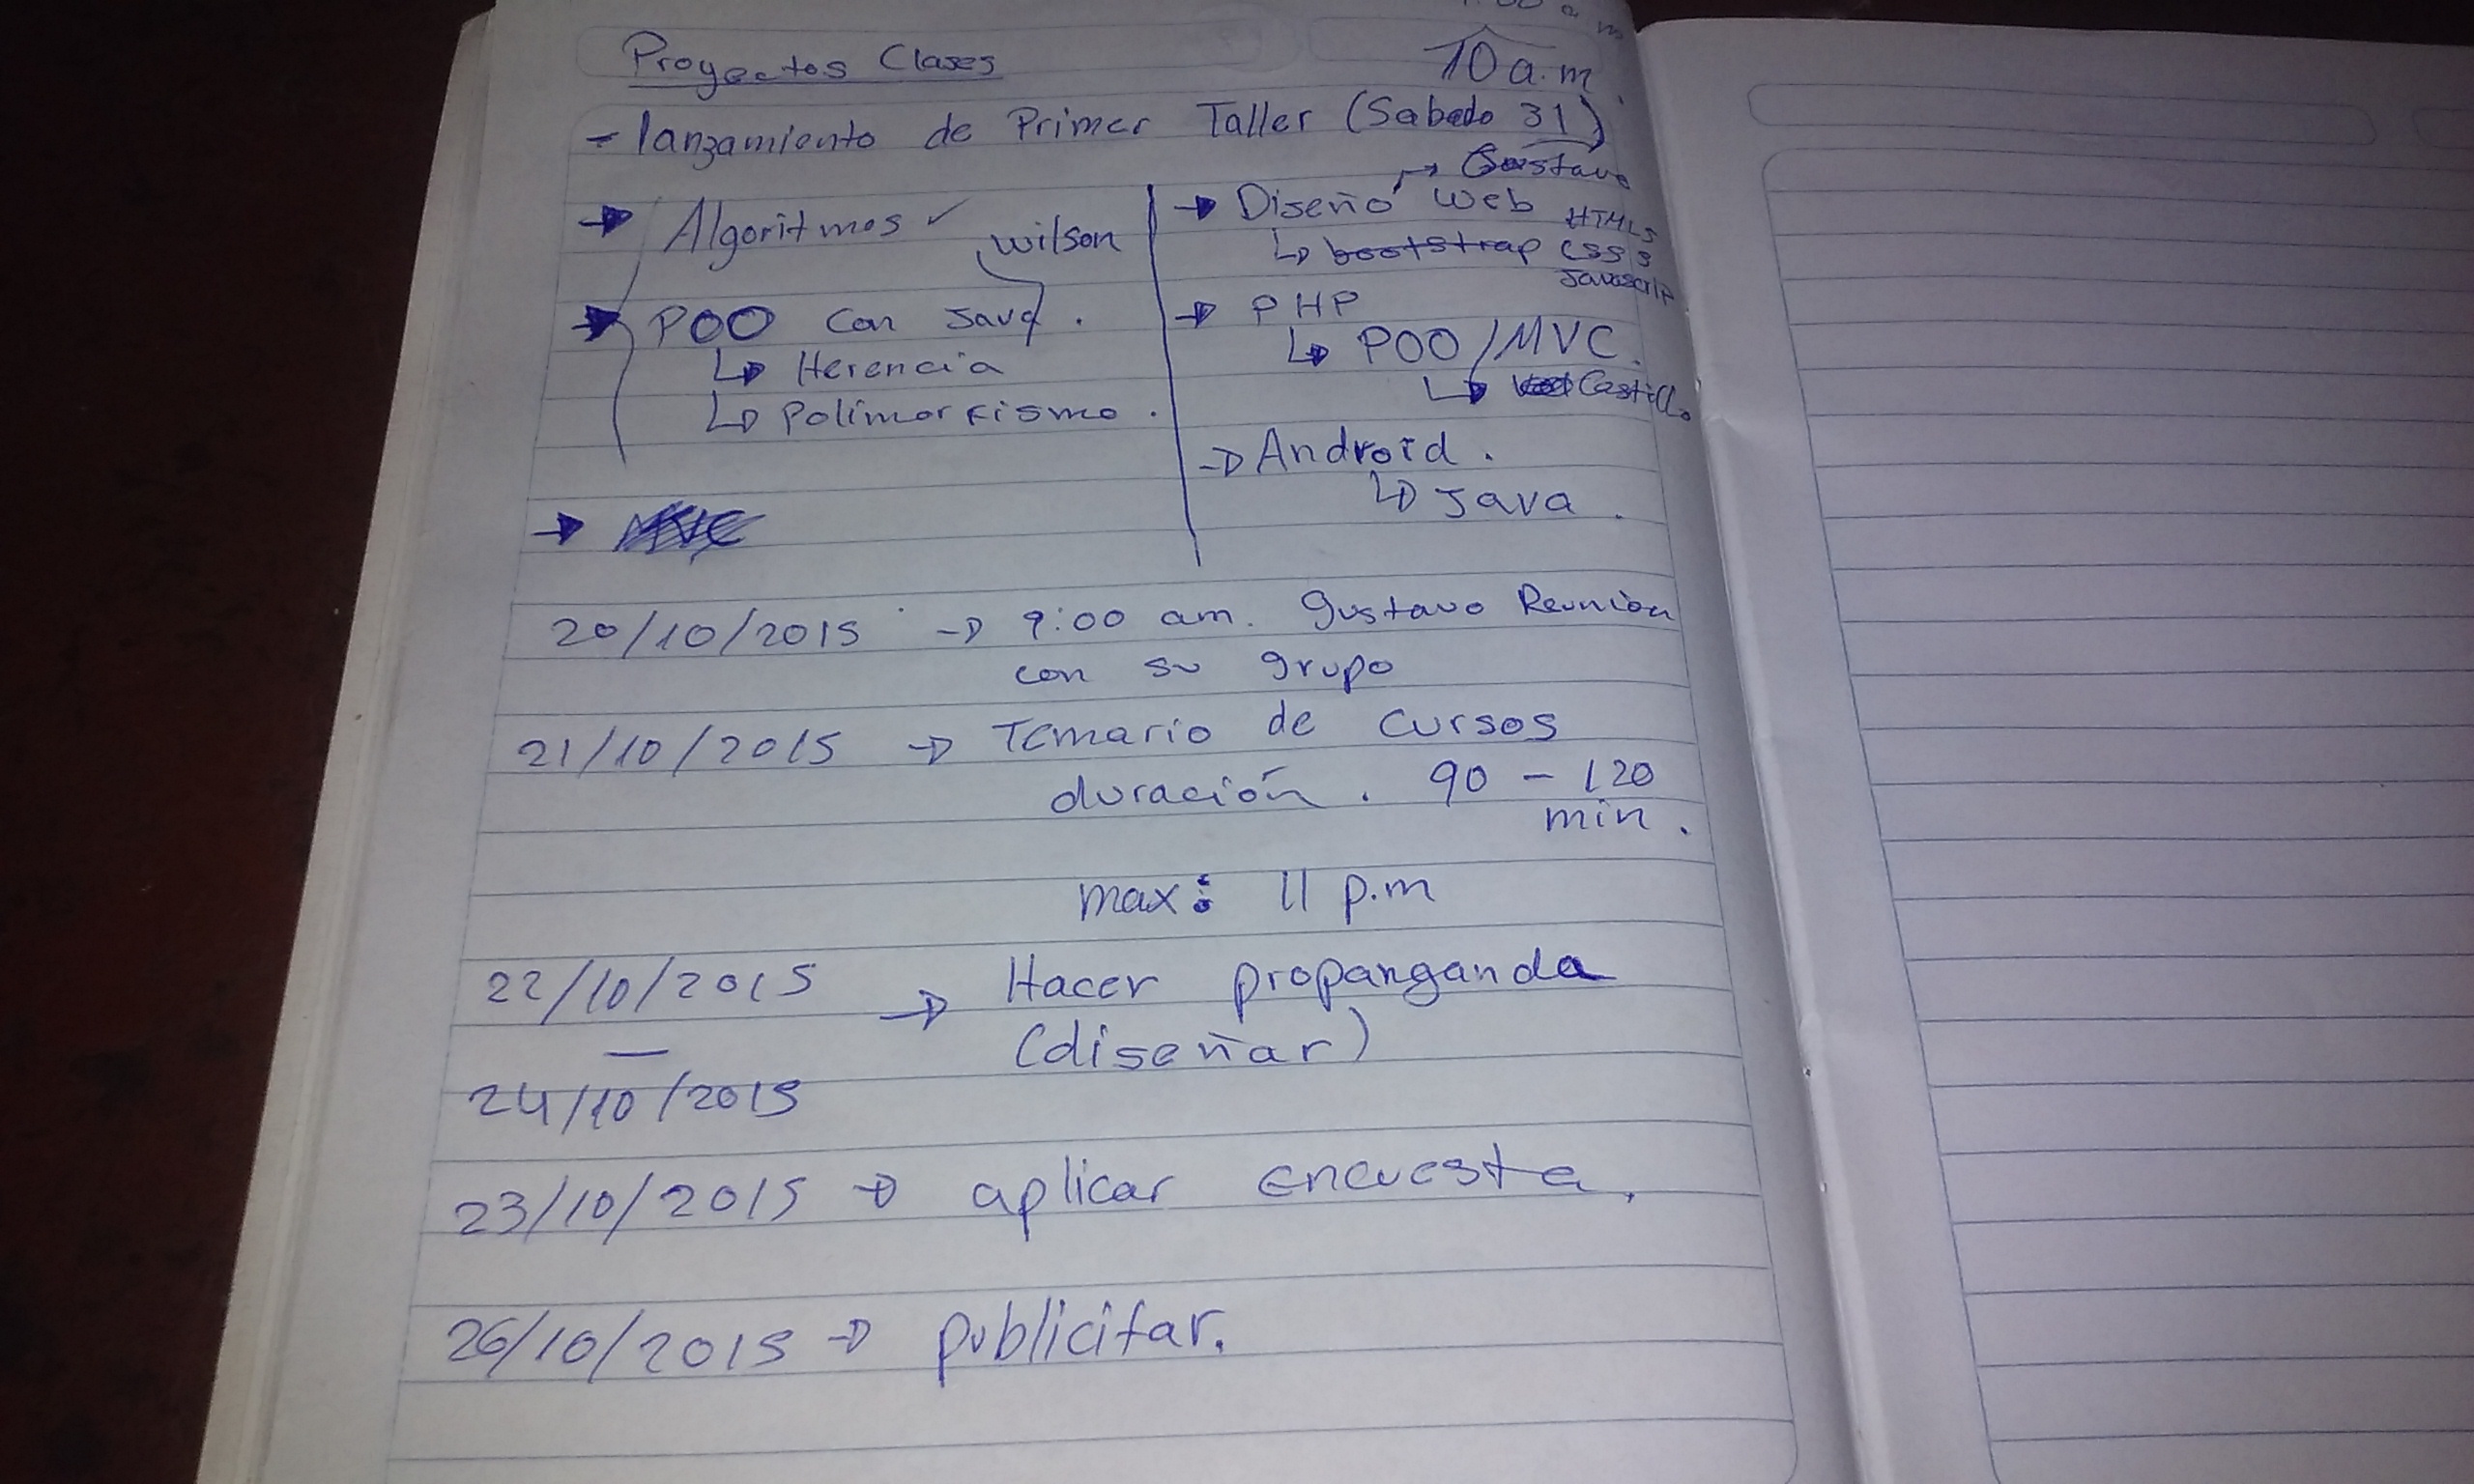 Proyectos Clases
10 a.m
- lanzamiento de Primer Taller (Sabado 31)
→ Algoritmos ✓
wilson
→ POO con Java.
↳ Herencia
↳ Polimorfismo.
→ MVC
→ Gustavo
→ Diseño web HTML5
↳ bootstrap CSS3
Javascrip
→ PHP
↳ POO/MVC.
↳ Castillo
→ Android.
↳ Java.
20/10/2015 → 9:00 am. Gustavo Reunion
con su grupo
21/10/2015 → Temario de cursos
duración. 90 - 120
min.
max: 11 p.m
22/10/2015 → Hacer propanganda
— (diseñar)
24/10/2015
23/10/2015 → aplicar encuesta.
26/10/2015 → publicitar.